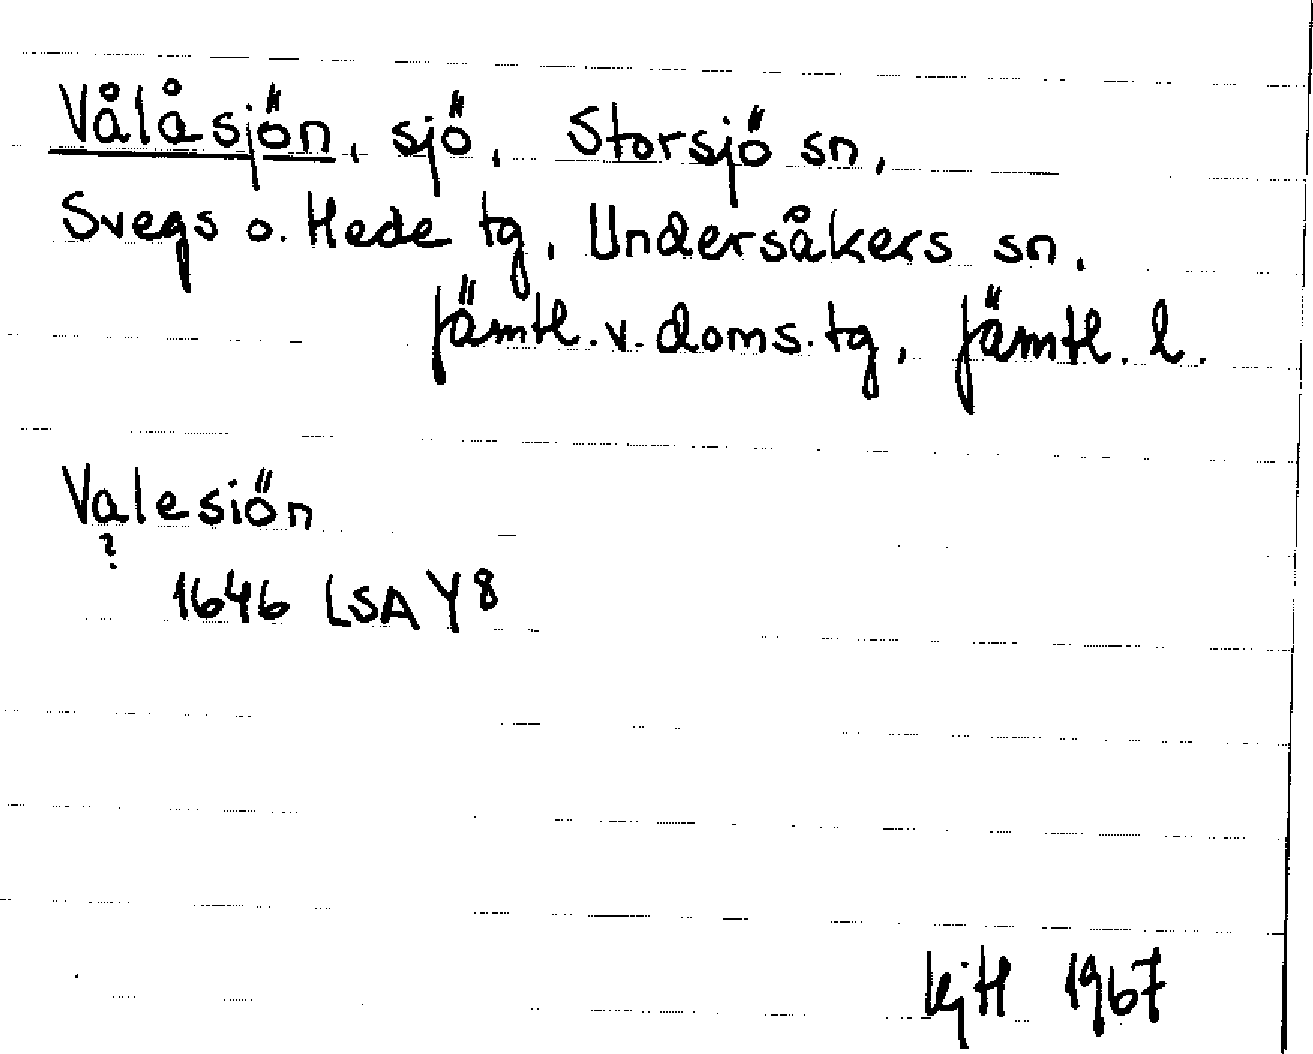 Vålåsjön, sjö, Storsjö sn,
Svegs o. Hede tg, Undersåkers sn,
Jämtl. v. doms. tg, Jämtl. l.
Valesiön
?
1646 LSA Y8
KjH 1967